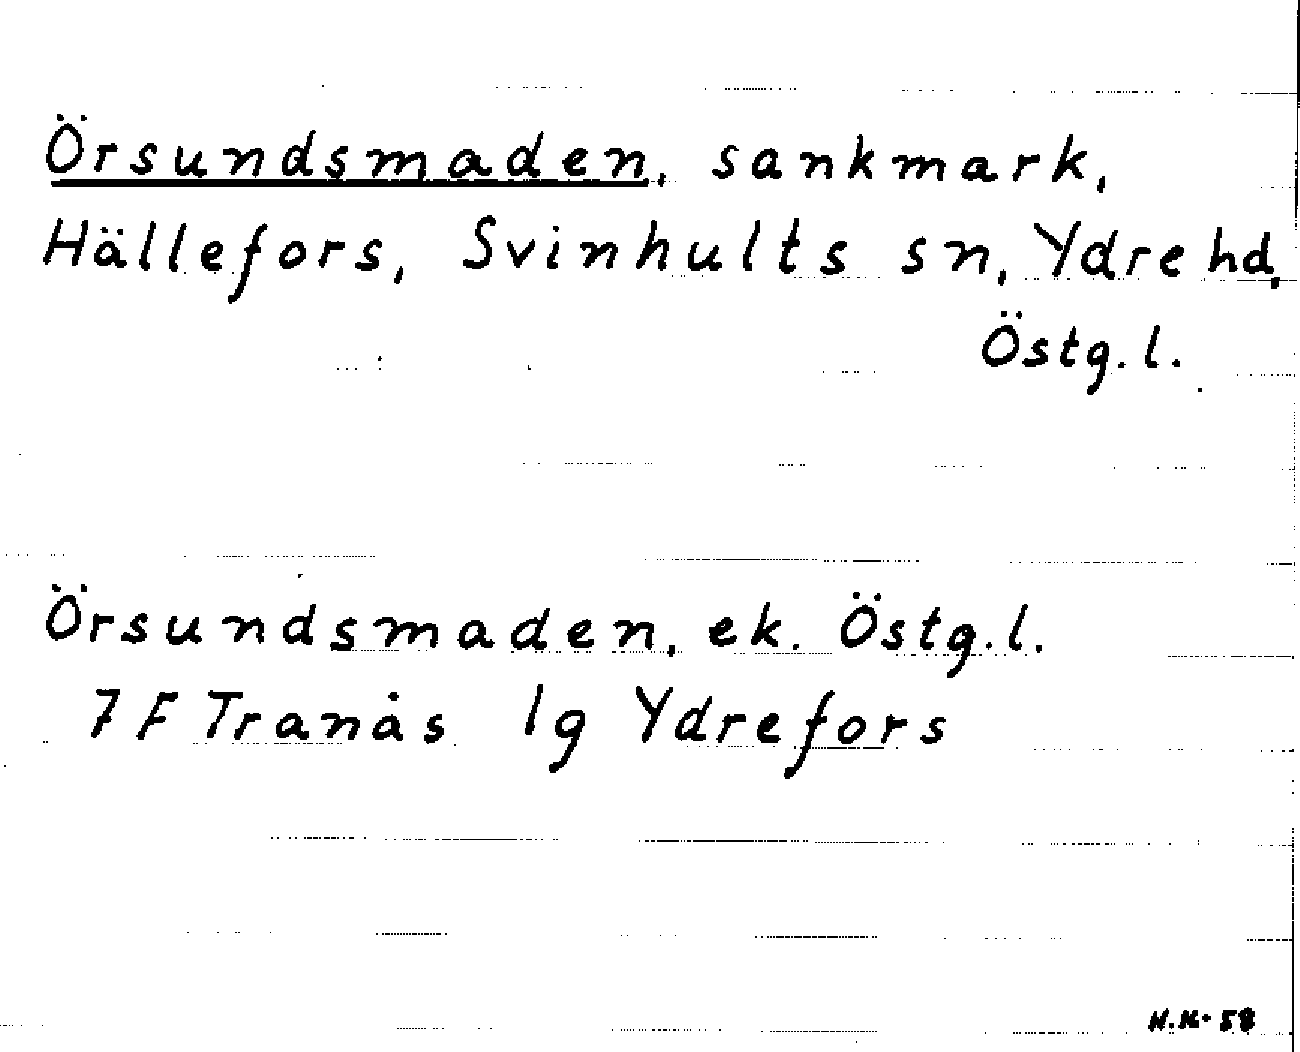 Örsundsmaden, sankmark,
Hällefors, Svinhults sn, Ydre hd,
Östg. l.
Örsundsmaden, ek. Östg. l.
7 F Tranås 1g Ydrefors
N.K. 58